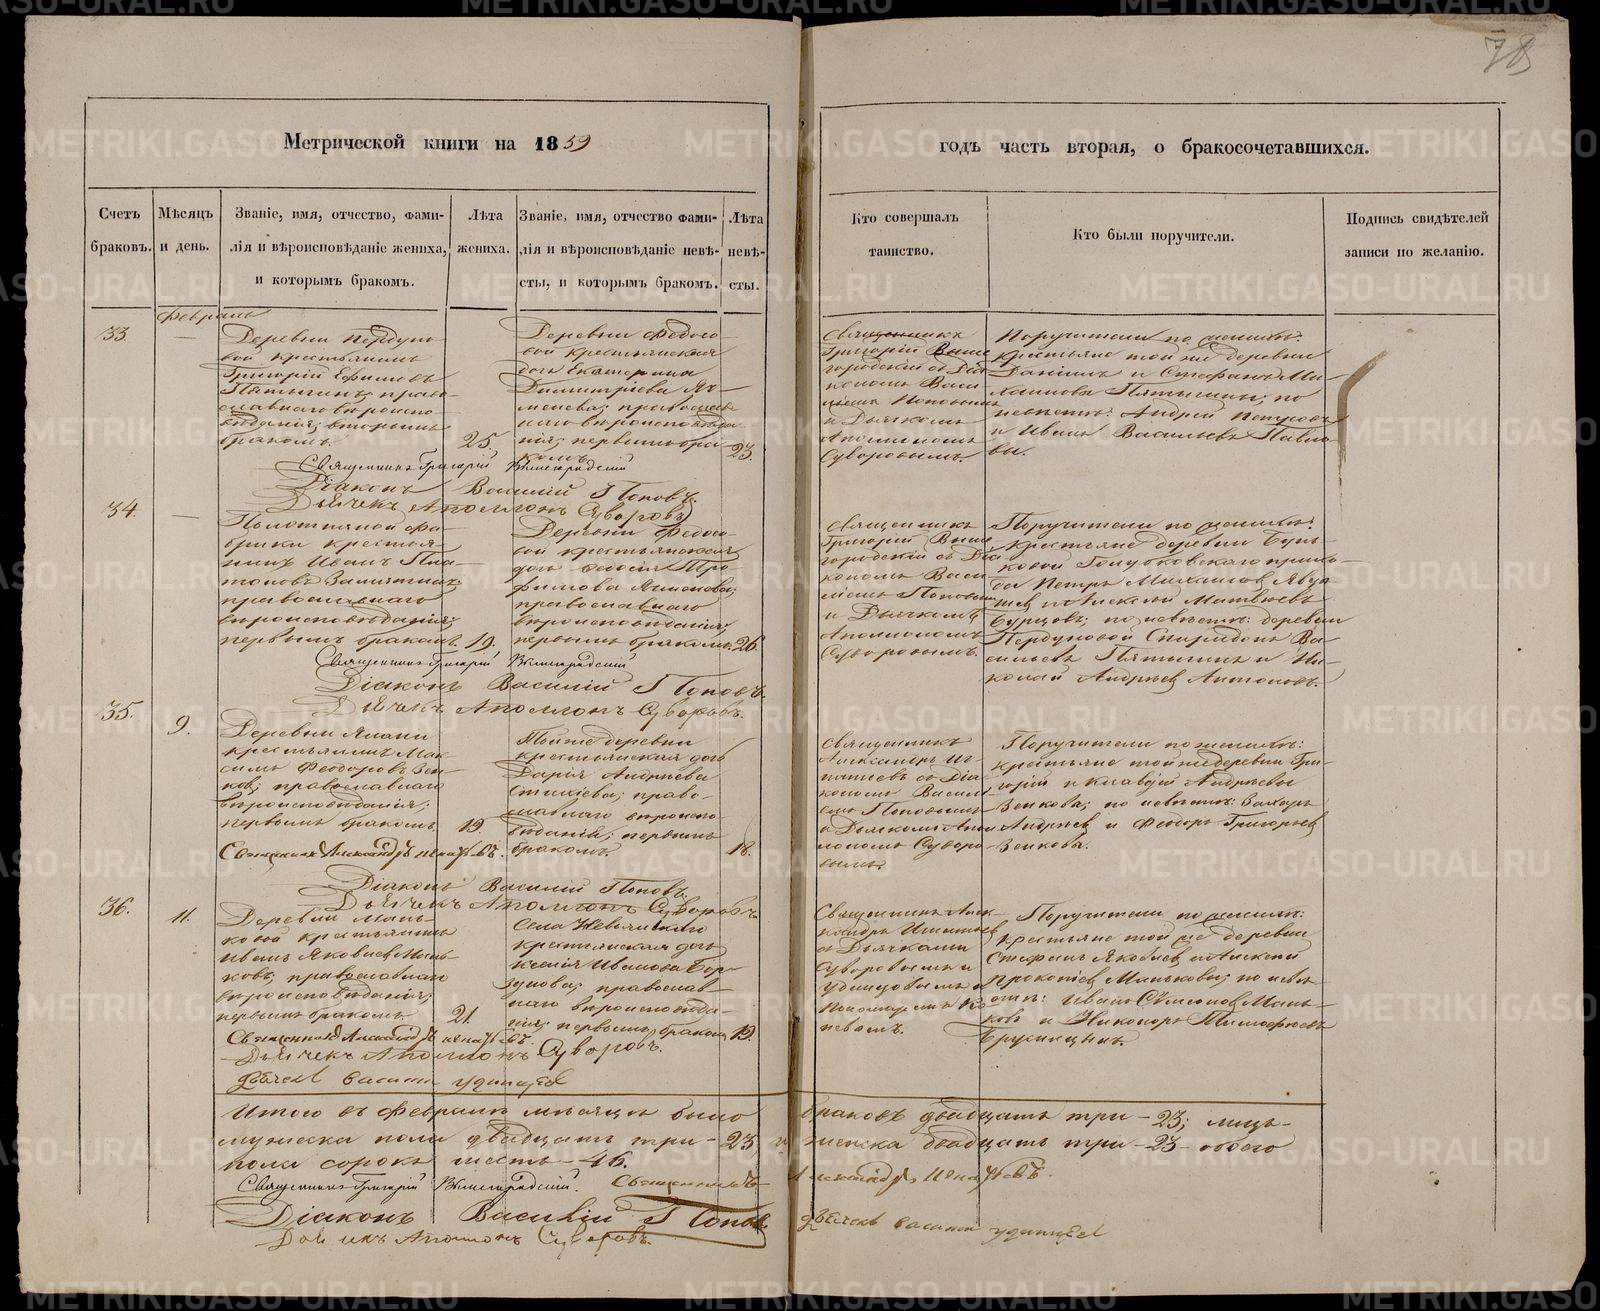 78
Метрической книги на 1859
годъ часть вторая, о бракосочетавшихся.
Счетъ браковъ.
Мѣсяцъ и день.
Званіе, имя, отчество, фами-
лія и вѣроисповѣданіе жениха,
и которымъ бракомъ.
Лѣта жениха.
Званіе, имя, отчество фами-
лія и вѣроисповѣданіе невѣ-
сты, и которымъ бракомъ.
Лѣта невѣ-
сты.
Кто совершалъ
таинство.
Кто были поручители.
Подпись свидѣтелей
записи по желанію.
Февраль
33.
—
Деревни Пердуно-
вой крестьянинъ
Григорій Ефимовъ
Пятыгинъ, право-
славнаго вѣроиспо-
вѣданія; вторымъ
бракомъ.
25.
Деревни Федосо-
вой крестьянская
дочь Екатерина
Димитріева
православ-
наго вѣроисповѣда-
нія; первымъ бра-
комъ.
23.
Священникъ
Григорій Выше-
городскій съ Діа-
кономъ Васи-
ліемъ Поповымъ
и Дьячкомъ
Аполлономъ
Суворовымъ.
Поручители по женихѣ:
крестьяне той же деревни
Даніилъ и Стефанъ Ми-
хаиловы Пятыгины; по
невѣстѣ: Андрей
и Иванъ Васильевъ Павло-
вы.
Священникъ Григорій Вышегородскій
Діаконъ Василій Поповъ.
Дьячекъ Аполлонъ Суворовъ
34.
—
Полотняной фа-
брики крестья-
нинъ Иванъ Пла-
тоновъ
православнаго
вѣроисповѣданія;
первымъ бракомъ.
19.
Деревни Федосо-
вой крестьянская
дочь Феодосія Тро-
фимова
православнаго
вѣроисповѣданія;
первымъ бракомъ.
26.
Священникъ
Григорій Выше-
городскій съ Діа-
кономъ Васи-
ліемъ Поповымъ
и Дьячкомъ
Аполлономъ
Суворовымъ.
Поручители по женихѣ:
крестьяне деревни
Голубковскаго прихо-
да Петръ Михаиловъ
и Алексѣй Матвѣевъ
Бурцовъ; по невѣстѣ: деревни
Пердуновой Спиридонъ Ва-
сильевъ Пятыгинъ и Ни-
колай Андреевъ Антоновъ.
Священникъ Григорій Вышегородскій
Діаконъ Василій Поповъ.
Дьячекъ Аполлонъ Суворовъ.
35.
9.
Деревни Ялани
крестьянинъ Мак-
симъ Феодоровъ Зен-
ковъ; православнаго
вѣроисповѣданія;
первымъ бракомъ
19.
Той же деревни
крестьянская дочь
Дарія Андреева
право-
славнаго вѣроиспо-
вѣданія; первымъ
бракомъ.
18.
Священникъ
Александръ Иг-
натіевъ съ Діа-
кономъ Васи-
ліемъ Поповымъ
и Дьячкомъ Апол-
лономъ Суворо-
вымъ.
Поручители по женихѣ:
крестьяне той же деревни Гри-
горій и Андреевы
Зенковы; по невѣстѣ: Захаръ
Андреевъ и Феодоръ Григорьевъ
Зенковы.
Священникъ Александръ Игнатьевъ.
Діаконъ Василій Поповъ.
Дьячекъ Аполлонъ Суворовъ.
36.
11.
Деревни Мань-
ковой крестьянинъ
Иванъ Яковлевъ Мань-
ковъ; православнаго
вѣроисповѣданія;
первымъ бракомъ
21.
Села Невьянскаго
крестьянская дочь
Ксенія Иванова
православ-
наго вѣроисповѣда-
нія; первымъ бракомъ
19.
Священникъ Алек-
сандръ Игнатьевъ
съ Дьячками
Суворовымъ и
Удинцовымъ и
Пономаремъ
Поручители по женихѣ:
крестьяне той же деревни
Стефанъ Яковлевъ и Алексѣй
Прокопіевъ Маньковы; по невѣ-
стѣ: Иванъ Симеоновъ Мань-
ковъ и Никоноръ Тимофеевъ
Брусницинъ.
Священникъ Александръ Игнатьевъ.
Дьячекъ Аполлонъ Суворовъ.
Дьячекъ Василій Удинцовъ
Итого въ Февралѣ мѣсяцѣ было браковъ двадцать три - 23; лицъ-
мужеска пола двадцать три - 23 и женска двадцать три - 23 обоего
пола сорокъ шесть - 46.
Священникъ Григорій Вышегородскій. Священникъ Александръ Игнатьевъ.
Діаконъ Василій Поповъ. Дьячекъ Василій Удинцовъ
Дьячекъ Аполлонъ Суворовъ.
METRIKI.GASO-URAL.RU